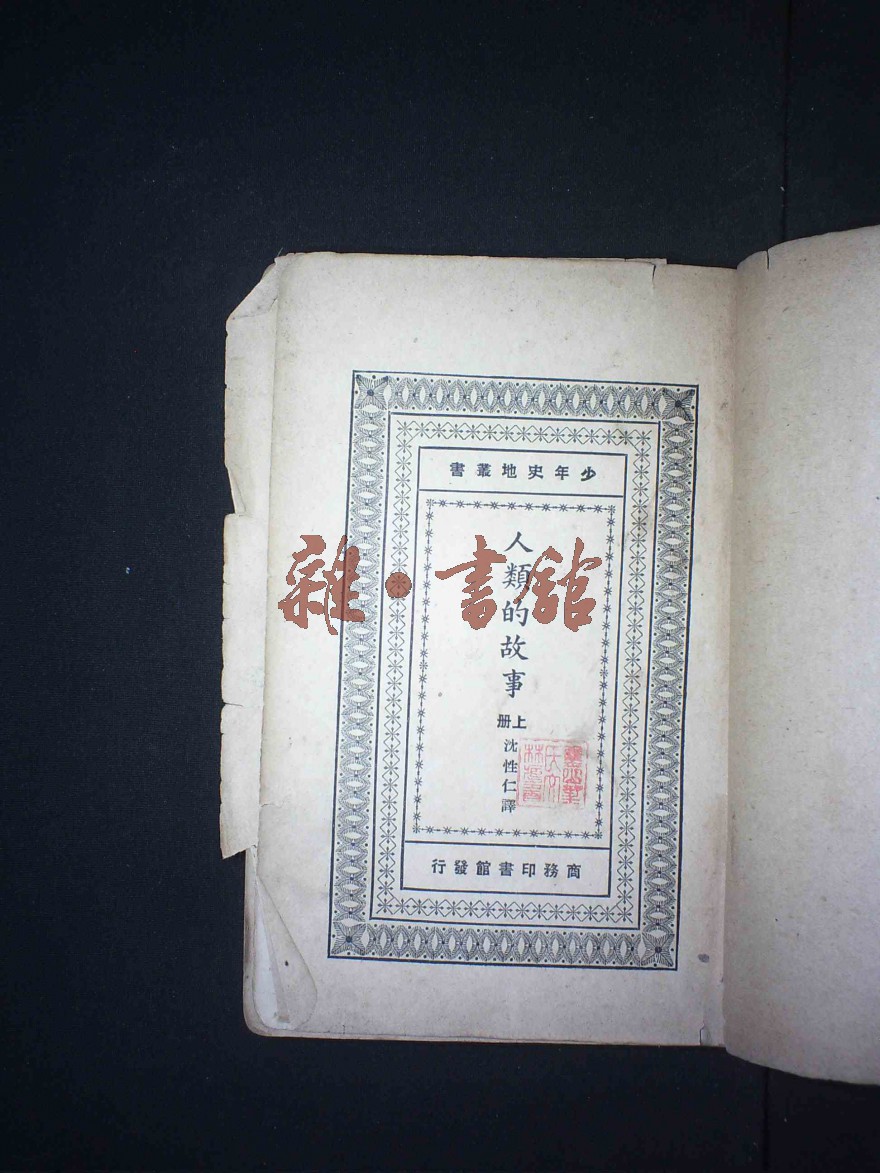 少年史地叢書
人類的故事
上册
沈性仁譯
商務印書館發行
雜·書館